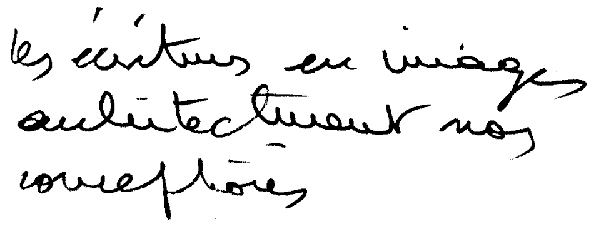 les écritures en images
architecturent nos